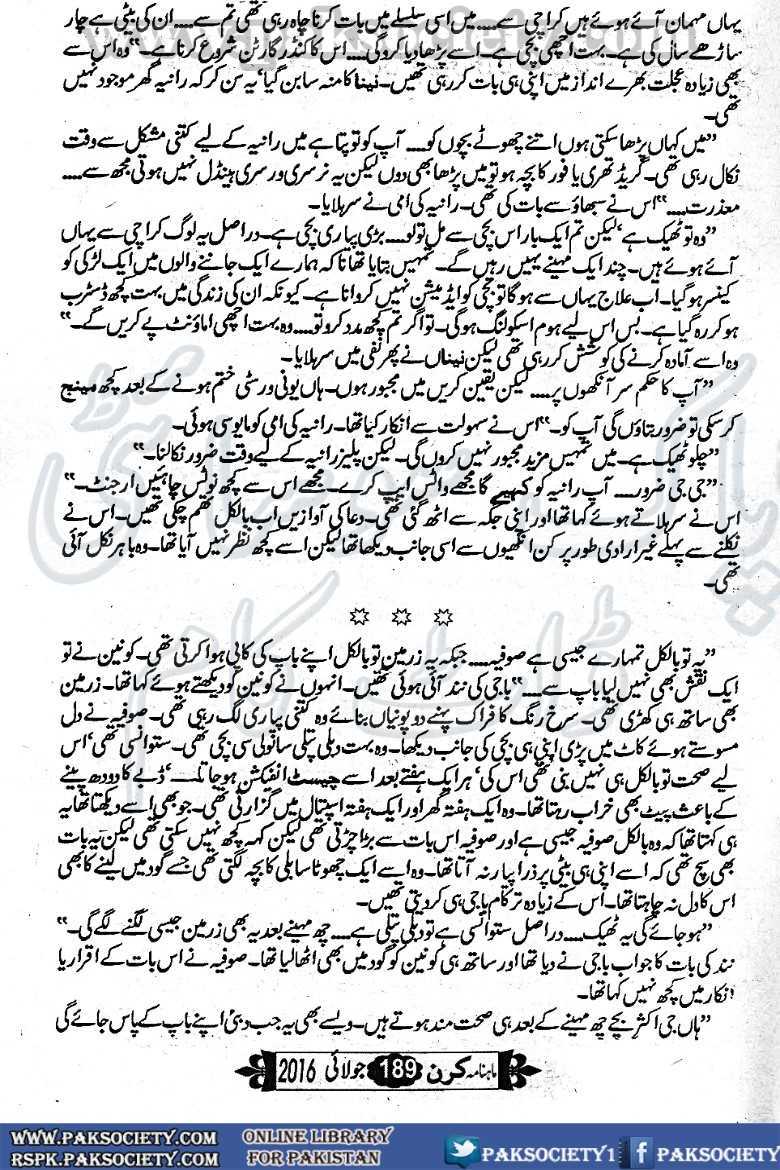 یہاں مہمان آئے ہوئے ہیں کراچی سے.... میں اسی سلسلے میں بات کرنا چاہ رہی تھی تم سے.... ان کی بیٹی ہے چار
ساڑھے سال کی ہے۔ بہت اچھی بچی ہے۔ اسے پڑھا دیا کرو گی.... اس کا کنڈر گارٹن شروع کرنا ہے۔“ وہ اس سے
بھی زیادہ عجلت بھرے انداز میں اپنی ہی بات کر رہی تھیں۔ نینا کا منہ سا بن گیا‘ یہ سن کر کہ رانیہ گھر موجود نہیں
تھی۔
”میں کہاں پڑھا سکتی ہوں اتنے چھوٹے بچوں کو.... آپ کو تو پتا ہے میں رانیہ کے لیے کتنی مشکل سے وقت
نکال رہی تھی۔ گریڈ تھری یا فور کا بچہ ہو تو میں پڑھا بھی دوں لیکن یہ نرسری ورسری ہینڈل نہیں ہوتی مجھ سے....
معذرت....“ اس نے سبھاؤ سے بات کی تھی۔ رانیہ کی امی نے سر ہلایا۔
”وہ تو ٹھیک ہے‘ لیکن تم ایک بار اس بچی سے مل تو لو.... بڑی پیاری بچی ہے۔ دراصل یہ لوگ کراچی سے یہاں
آئے ہوئے ہیں۔ چند ایک مہینے یہیں رہیں گے۔ تمہیں بتایا تھا نا کہ ہمارے ایک جاننے والوں میں ایک لڑکی کو
کینسر ہو گیا۔ اب علاج یہاں سے ہو گا تو بچی کو ایڈمیشن نہیں کروانا ہے۔ کیونکہ ان کی زندگی میں بہت کچھ ڈسٹرب
ہو کر رہ گیا ہے۔ بس اس لیے ہوم اسکولنگ ہو گی۔ تو اگر تم کچھ مدد کرو تو.... وہ بہت اچھی اماؤنٹ پے کریں گے۔“
وہ اسے آمادہ کرنے کی کوشش کر رہی تھی لیکن نیناں نے پھر نفی میں سر ہلایا۔
”آپ کا حکم سر آنکھوں پر.... لیکن یقین کریں میں مجبور ہوں۔ ہاں یونی ورسٹی ختم ہونے کے بعد کچھ مینج
کر سکی تو ضرور بتاؤں گی آپ کو۔“ اس نے سہولت سے انکار کیا تھا۔ رانیہ کی امی کو مایوسی ہوئی۔
”چلو ٹھیک ہے۔ میں تمہیں مزید مجبور نہیں کروں گی۔ لیکن پلیز رانیہ کے لیے وقت ضرور نکالنا۔“
”جی جی ضرور.... آپ رانیہ کو کہیے گا مجھے واٹس ایپ کرے۔ مجھے اس سے کچھ نوٹس چاہئیں ارجنٹ۔“
اس نے سر ہلاتے ہوئے کہا تھا اور اپنی جگہ سے اٹھ گئی تھی۔ دعا کی آوازیں اب بالکل تھم چکی تھیں۔ اس نے
نکلنے سے پہلے غیر ارادی طور پر کن انکھیوں سے اسی جانب دیکھا تھا لیکن اسے کچھ نظر نہیں آیا تھا۔ وہ باہر نکل آئی
تھی۔
”یہ تو بالکل تمہارے جیسی ہے صوفیہ.... جبکہ یہ زرمین تو بالکل اپنے باپ کی کاپی ہوا کرتی تھی۔ کونین نے تو
ایک نقش بھی نہیں لیا باپ سے....“ باجی کی نند آئی ہوئی تھیں۔ انہوں نے کونین کو دیکھتے ہوئے کہا تھا۔ زرمین
بھی ساتھ ہی کھڑی تھی۔ سرخ رنگ کا فراک پہنے دو پونیاں بنائے وہ کتنی پیاری لگ رہی تھی۔ صوفیہ نے دل
مسوستے ہوئے کاٹ میں پڑی اپنی ہی بچی کی جانب دیکھا۔ وہ بہت دبلی پتلی سانولی سی بچی تھی۔ ستوانسی تھی‘ اس
لیے صحت تو بالکل ہی نہیں بنی تھی اس کی‘ ہر ایک ہفتے بعد اسے چیسٹ انفیکشن ہو جاتا....‘ ڈبے کا دودھ پینے
کے باعث پیٹ بھی خراب رہتا تھا۔ وہ ایک ہفتہ گھر اور ایک ہفتہ اسپتال میں گزارتی تھی۔ جو بھی اسے دیکھتا تھا یہ
ہی کہتا تھا کہ وہ بالکل صوفیہ جیسی ہے اور صوفیہ اس بات سے بڑا چڑتی تھی لیکن کہہ کچھ نہیں سکتی تھی لیکن یہ بات
بھی سچ تھی کہ اسے اپنی ہی بیٹی پر ذرا پیار نہ آتا تھا۔ وہ اسے ایک چھوٹا سا بلی کا بچہ لگتی تھی جسے گود میں لینے کا بھی
اس کا دل نہ چاہتا تھا۔ اس کے زیادہ تر کام باجی ہی کر دیتی تھیں۔
”ہو جائے گی یہ ٹھیک.... دراصل ستوانسی ہے تو دبلی پتلی ہے.... چھ مہینے بعد یہ بھی زرمین جیسی لگنے لگے گی۔“
نند کی بات کا جواب باجی نے دیا تھا اور ساتھ ہی کونین کو گود میں بھی اٹھا لیا تھا۔ صوفیہ نے اس بات کے اقرار یا
انکار میں کچھ نہیں کہا تھا۔
”ہاں جی اکثر بچے چھ مہینے کے بعد ہی صحت مند ہوتے ہیں۔ ویسے بھی یہ جب دبئی اپنے باپ کے پاس جائے گی
ماہنامہ کرن 189 جولائی 2016
WWW.PAKSOCIETY.COM ONLINE LIBRARY PAKSOCIETY1 PAKSOCIETY
RSPK.PAKSOCIETY.COM FOR PAKISTAN